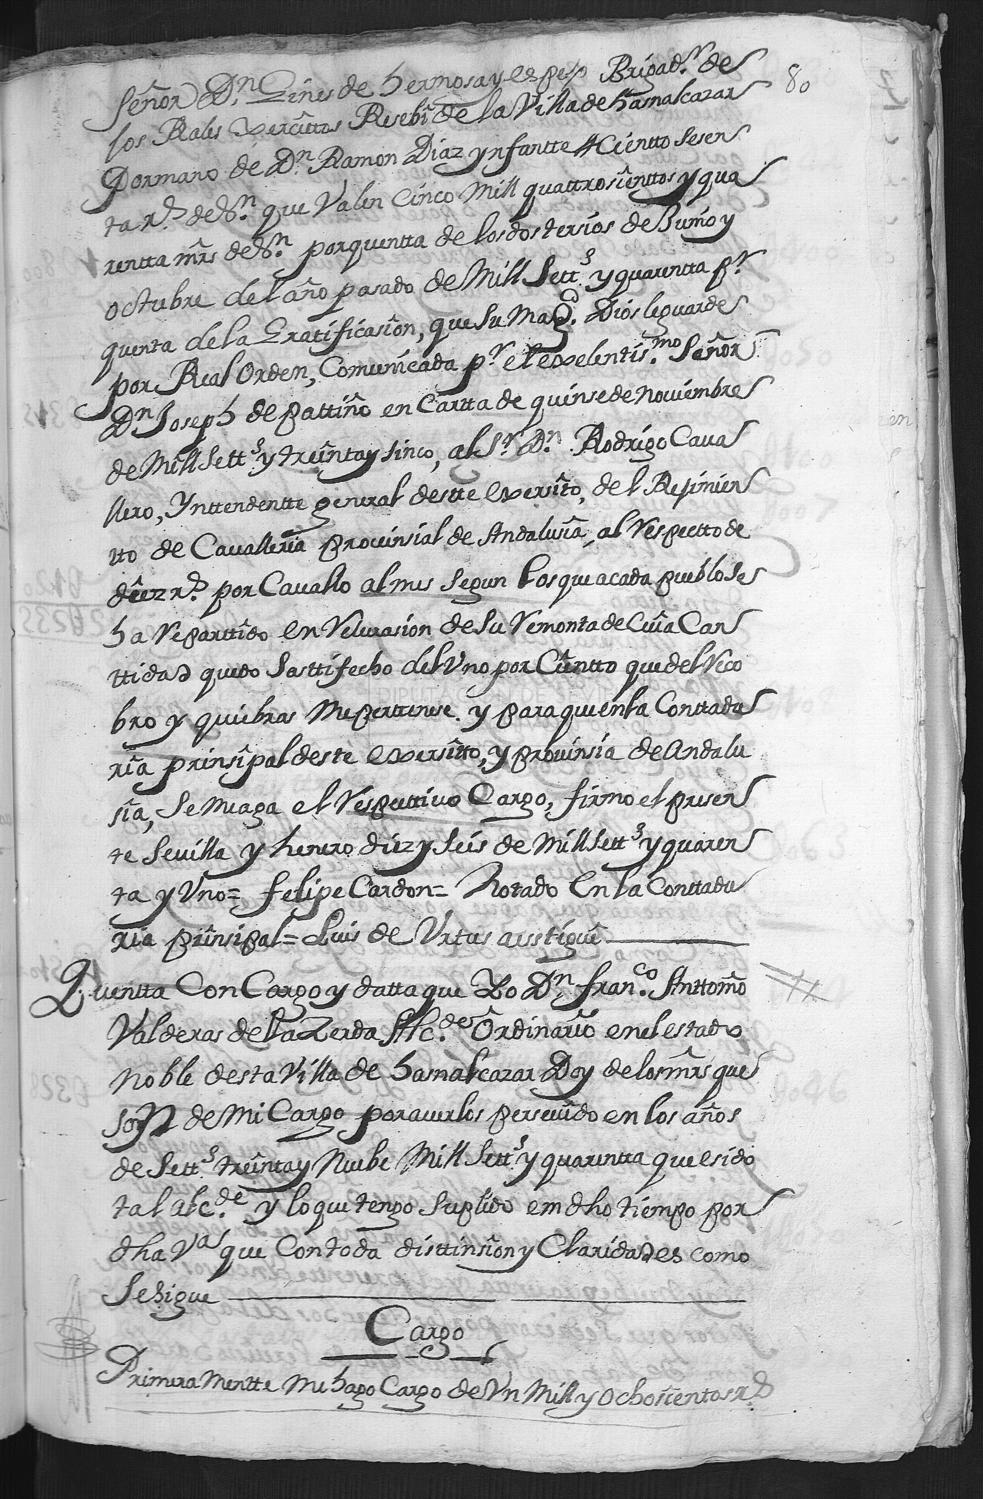 80
Señor Dn. Gines de hermosa y espejo Brigadr. de
los Rales exercittos Resebi de la Villa de hasnalcazar
Por mano de Dn. Ramon Diaz ynfantte 4 Cientto sesen
ta rs. de Vn. que Valen Cinco Mill quattrosienttos y qua
rentta mrs de Vn. por quentta de los dos tersios de Junio y
octubre del año pasado de Mill Setts. y quarentta pr.
quenta de la Grattificasion, que Su Magd. Dios le guarde
por Real Orden, Comunicada pr. el exelentissmo. Señor
Dn Joseph de pattiño en Cartta de quinse de noviembre
de Mill Setts. y treinta y sinco, al Sr. Dn. Rodrigo Cava
llero, Ynttendentte general de stte exersito, del Rejimien
tto de Cavalleria provinsial de Andalusia, al Respectto de
diez rs. por Cavallo al mes segun los que a cada pueblo se
ha Reparttido en Relurasion de Su Remonta de Cuia Can
ttidad quedo Sasttifecho del Vno por Cientto que del Reco
bro y quiebras me perttenese. y para que en la Conttadu
ria prinsipal deste exersitto, y provinsia de Andalu
sia, Se me aga el Respecttivo Cargo, firmo el presen
te Sevilla y henero diez y Seis de Mill Setts y quaren
ta y Vno= felipe Cardon= Notado En la Conttadu
ria prinsipal= Luis de Urtus aisstigui
Quentta Con Cargo y datta que Yo Dn. franco. Anttonio
Valderas de la Zerda Alcde. Ordinario en el estado
noble desta Villa de hasnalcazar Doy de los mrs que
son de Mi Cargo por averlos persevido en los años
de Setts. treinta y Nuebe Mill Setts y quarentta que e sido
tal alcde. y lo que tengo Suplido em dho tiempo por
dha Va. que Con toda disttinsion y Claridad es como
Se sigue
Cargo
Primeramentte me hago Cargo de Vn Mill y Ochosientos rs